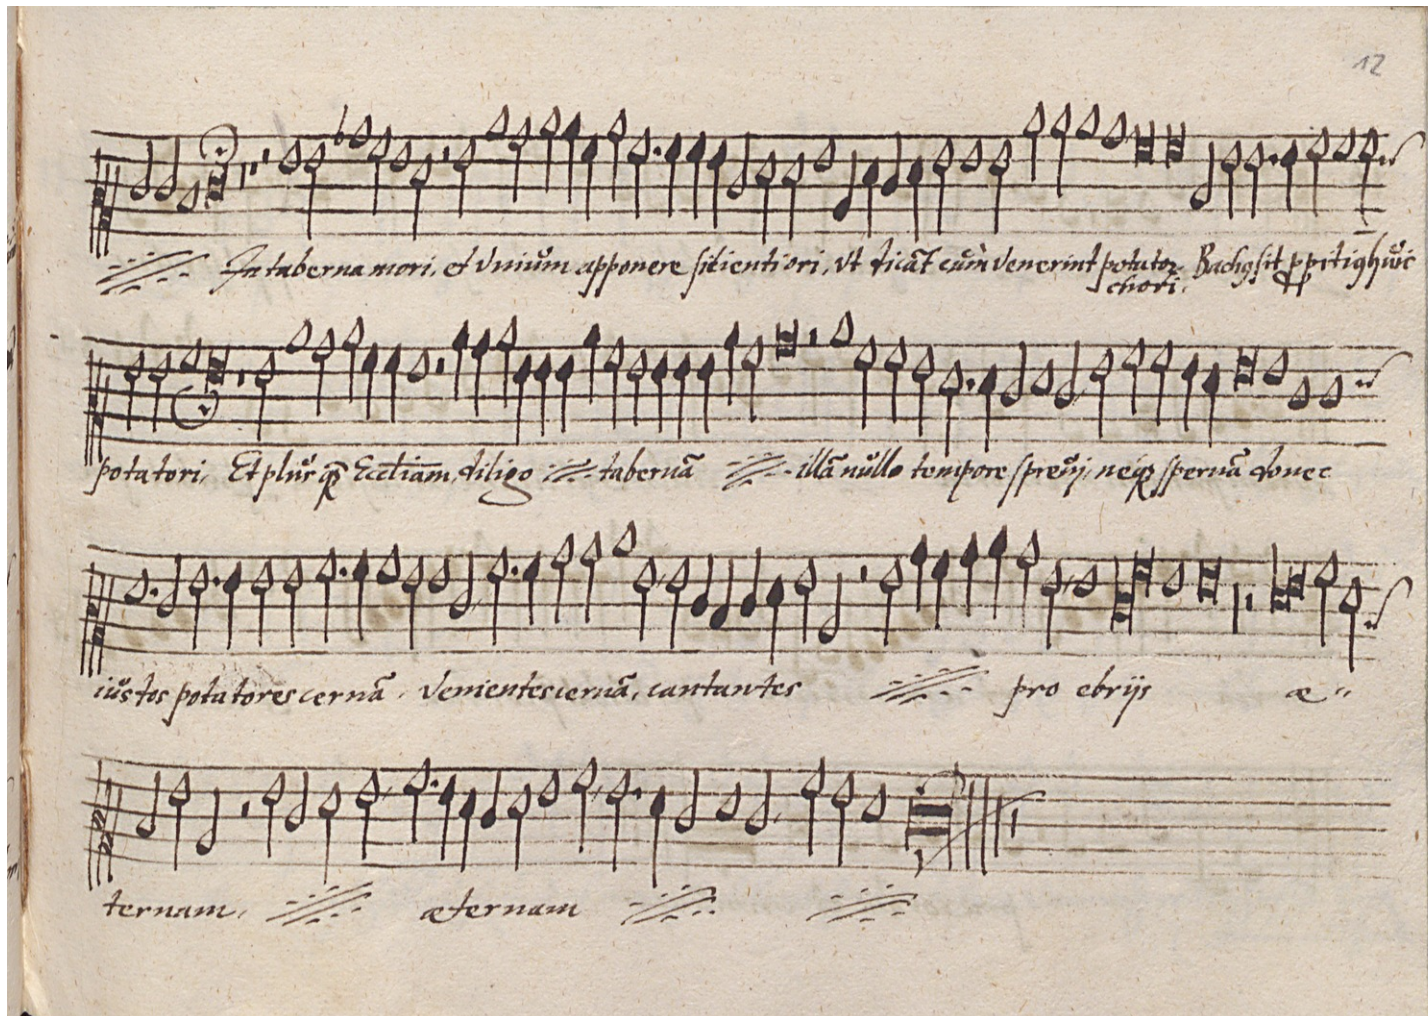 12
In taberna mori, et vnium apponere sitientiori, vt dicāt cum venerint potator Bach9 sit ꝓpiti9 huic
chori.
potatori, Et plus qʒ Eccliam, diligo tabernā illā nullo tempore spreuj, neqʒ spernā donec
iustos potatores cernā, venientes cernā, cantantes pro ebrijs æ-
ternam, æternam